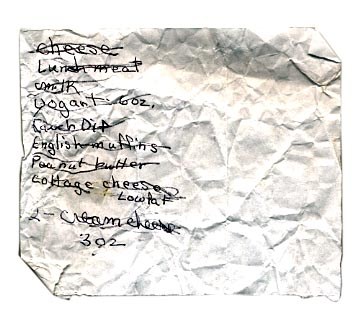 cheese
Lunch meat
milk
Yogart 6oz.
Ranch Dip
English muffins
Peanut butter
Cottage cheese
Lowfat
2- cream cheese
3oz